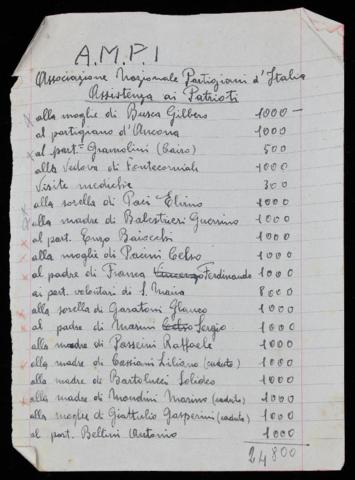 A.M.P.I
Associazione Nazionale Partigiani d'Italia
Assistenza ai Patrioti
alla moglie di Busca Gilbero 1000-
al partigiano d'Ancona 1000
al part. Gramolini (Cairo) 500
alla Vedova di 1000
Visite mediche 300
alla sorella di Paci Elvino 1000
alla madre di Balestrieri Guerrino 1000
al part. Enzo Baiocchi 1000
alla moglie di Pacini Celso 1000
al padre di Franca Vincenzo Ferdinando 1000
ai part. volontari di S. Maria 8000
alla sorella di Garattoni Glauco 1000
al padre di Marini Celso Sergio 1000
alla madre di Passeini Raffaele 1000
alla madre di Cassiani Liliano (caduto) 1000
alla madre di Bartolucci Solideo 1000
alla madre di Mondini Marino (caduto) 1000
alla moglie di Giattulio Gasperini (caduto) 1000
al part. Bellini Antonio 1000
24800